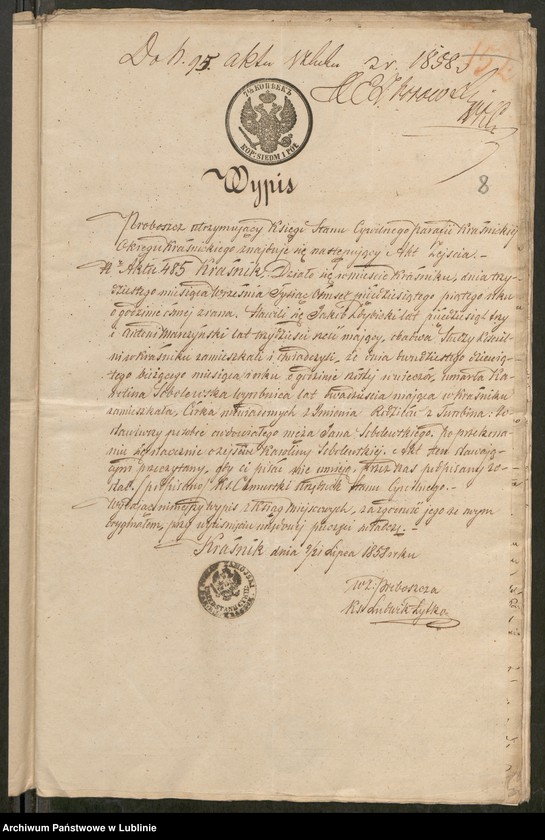 Do N. 95. aktu Ślubu z r. 1858
7½ КОПѢЕКЪ
KOP: SIEDM I PÓŁ
8
Wypis
Proboszcz utrzymujący Księgi Stanu Cywilnego parafii Kraśnickiej
Okręgu Kraśnickiego znajduje się następujący Akt Zejścia. –
Nr Aktu 485 Kraśnik. Działo się w mieście Kraśniku, dnia trzy-
dziestego miesiąca Września Tysiąc Ośmset pięćdziesiątego piątego roku
o godzinie ósmej zrana. Stawili się Jakób lat pięćdziesiąt trzy
i Antoni Marszyński lat trzydzieści mający, obadwa Stróży
w Kraśniku zamieszkali i oświadczyli, że dnia dwudziestego dziewią-
tego bieżącego miesiąca i roku o godzinie szóstej wieczór, umarła Ka-
rolina Sobolewska wyrobnica lat dwadzieścia mająca w Kraśniku
zamieszkała, Córka niewiadomych z Imienia Rodziców z Turobina. Zo-
stawiwszy po sobie owdowiałego męża Jana Sobolewskiego. Po przekona-
niu się naocznie o zejściu Karoliny Sobolewskiej. Akt ten stawają-
cym przeczytany, gdy ci pisać nie umieją, przez nas podpisany zo-
stał. /podpisano/ Ks. Urzędnik Stanu Cywilnego. –
Wydając niniejszy wypis z Ksiąg miejscowych, zaręczam jego ze swym
oryginałem, przy wyciśnięciu urzędowej pieczęci
Kraśnik dnia 9/21 Lipca 1858 roku
w z. Proboszcza
Ks. Ludwik Zytko.
Archiwum Państwowe w Lublinie